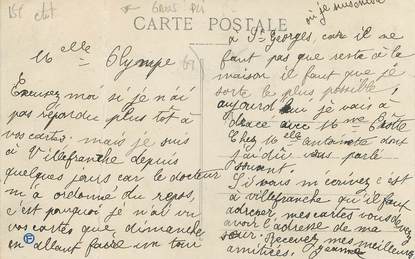 15€ chat
* GROS PLI
CARTE POSTALE
Melle Olympe
Excusez moi si je n'ai
pas répondu plus tôt à
vos cartes. mais je suis
à Villefranche depuis
quelques jours car le docteur
m'a ordonné du repos,
c'est pourquoi je n'ai vu
vos cartes que dimanche
en allant faire un tour
à St Georges, car il ne
faut pas que reste à la
maison il faut que je
sorte le plus possible,
aujourd'hui je vais à
avec Mme
Chez Melle antoinette dont
j'ai dû vous parlé
souvent.
Si vous m'écrivez c'est
à villefranche qu'il faut
adresser mes cartes vous devez
avoir l'adresse de ma
sœur. Recevez mes meilleures
amitiées. Jeanne
où je